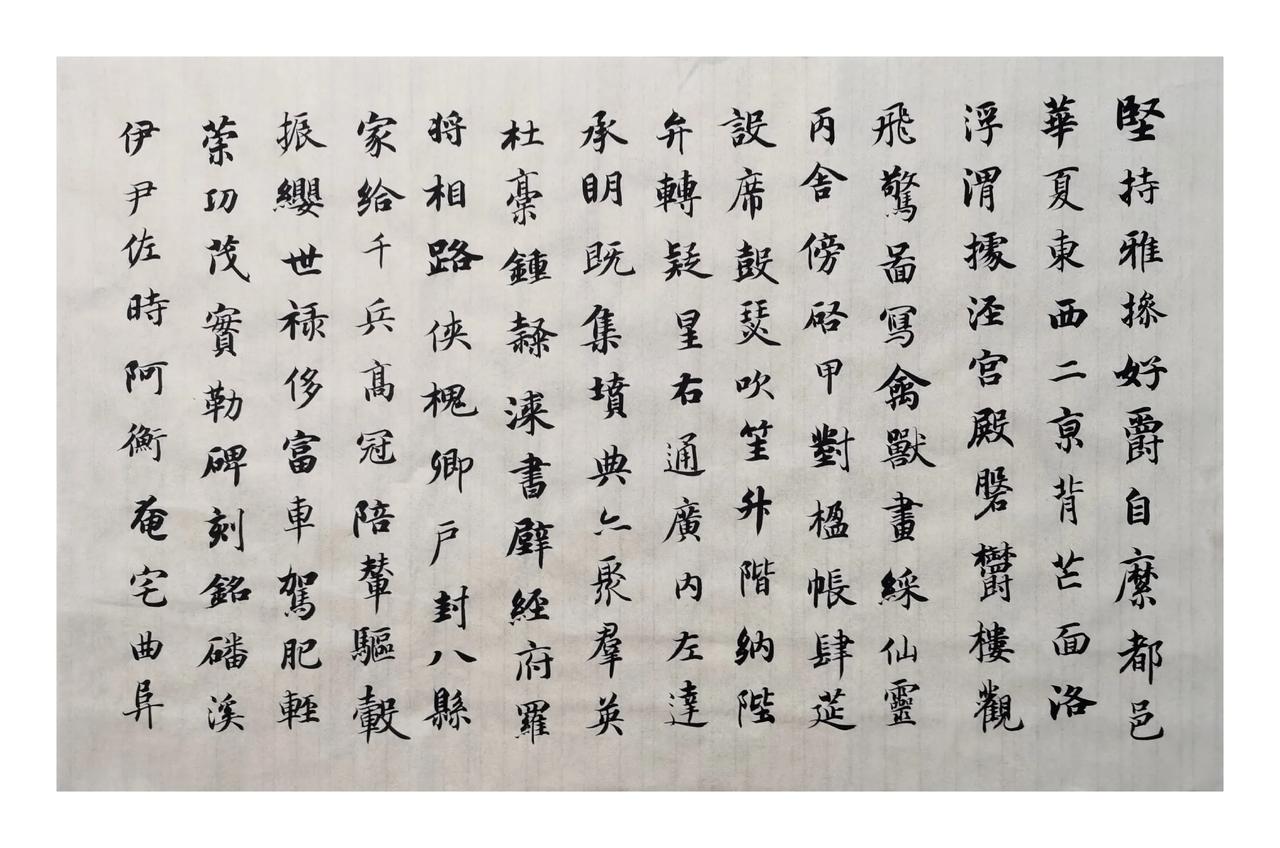 堅持雅操好爵自縻都邑
華夏東西二京背芒面洛
浮渭據涇宮殿磐欝樓觀
飛驚啚寫禽獸畫綵仙靈
丙舍傍啓甲對楹帳肆莚
設席鼓瑟吹笙升階納陛
弁轉疑星右通廣內左達
承明既集墳典亦聚羣英
杜稾鍾隸漆書壁經府羅
將相路俠槐卿戶封八縣
家給千兵高冠陪輦驅轂
振纓世禄侈富車駕肥輕
策功茂實勒碑刻銘磻溪
伊尹佐時阿衡奄宅曲阜